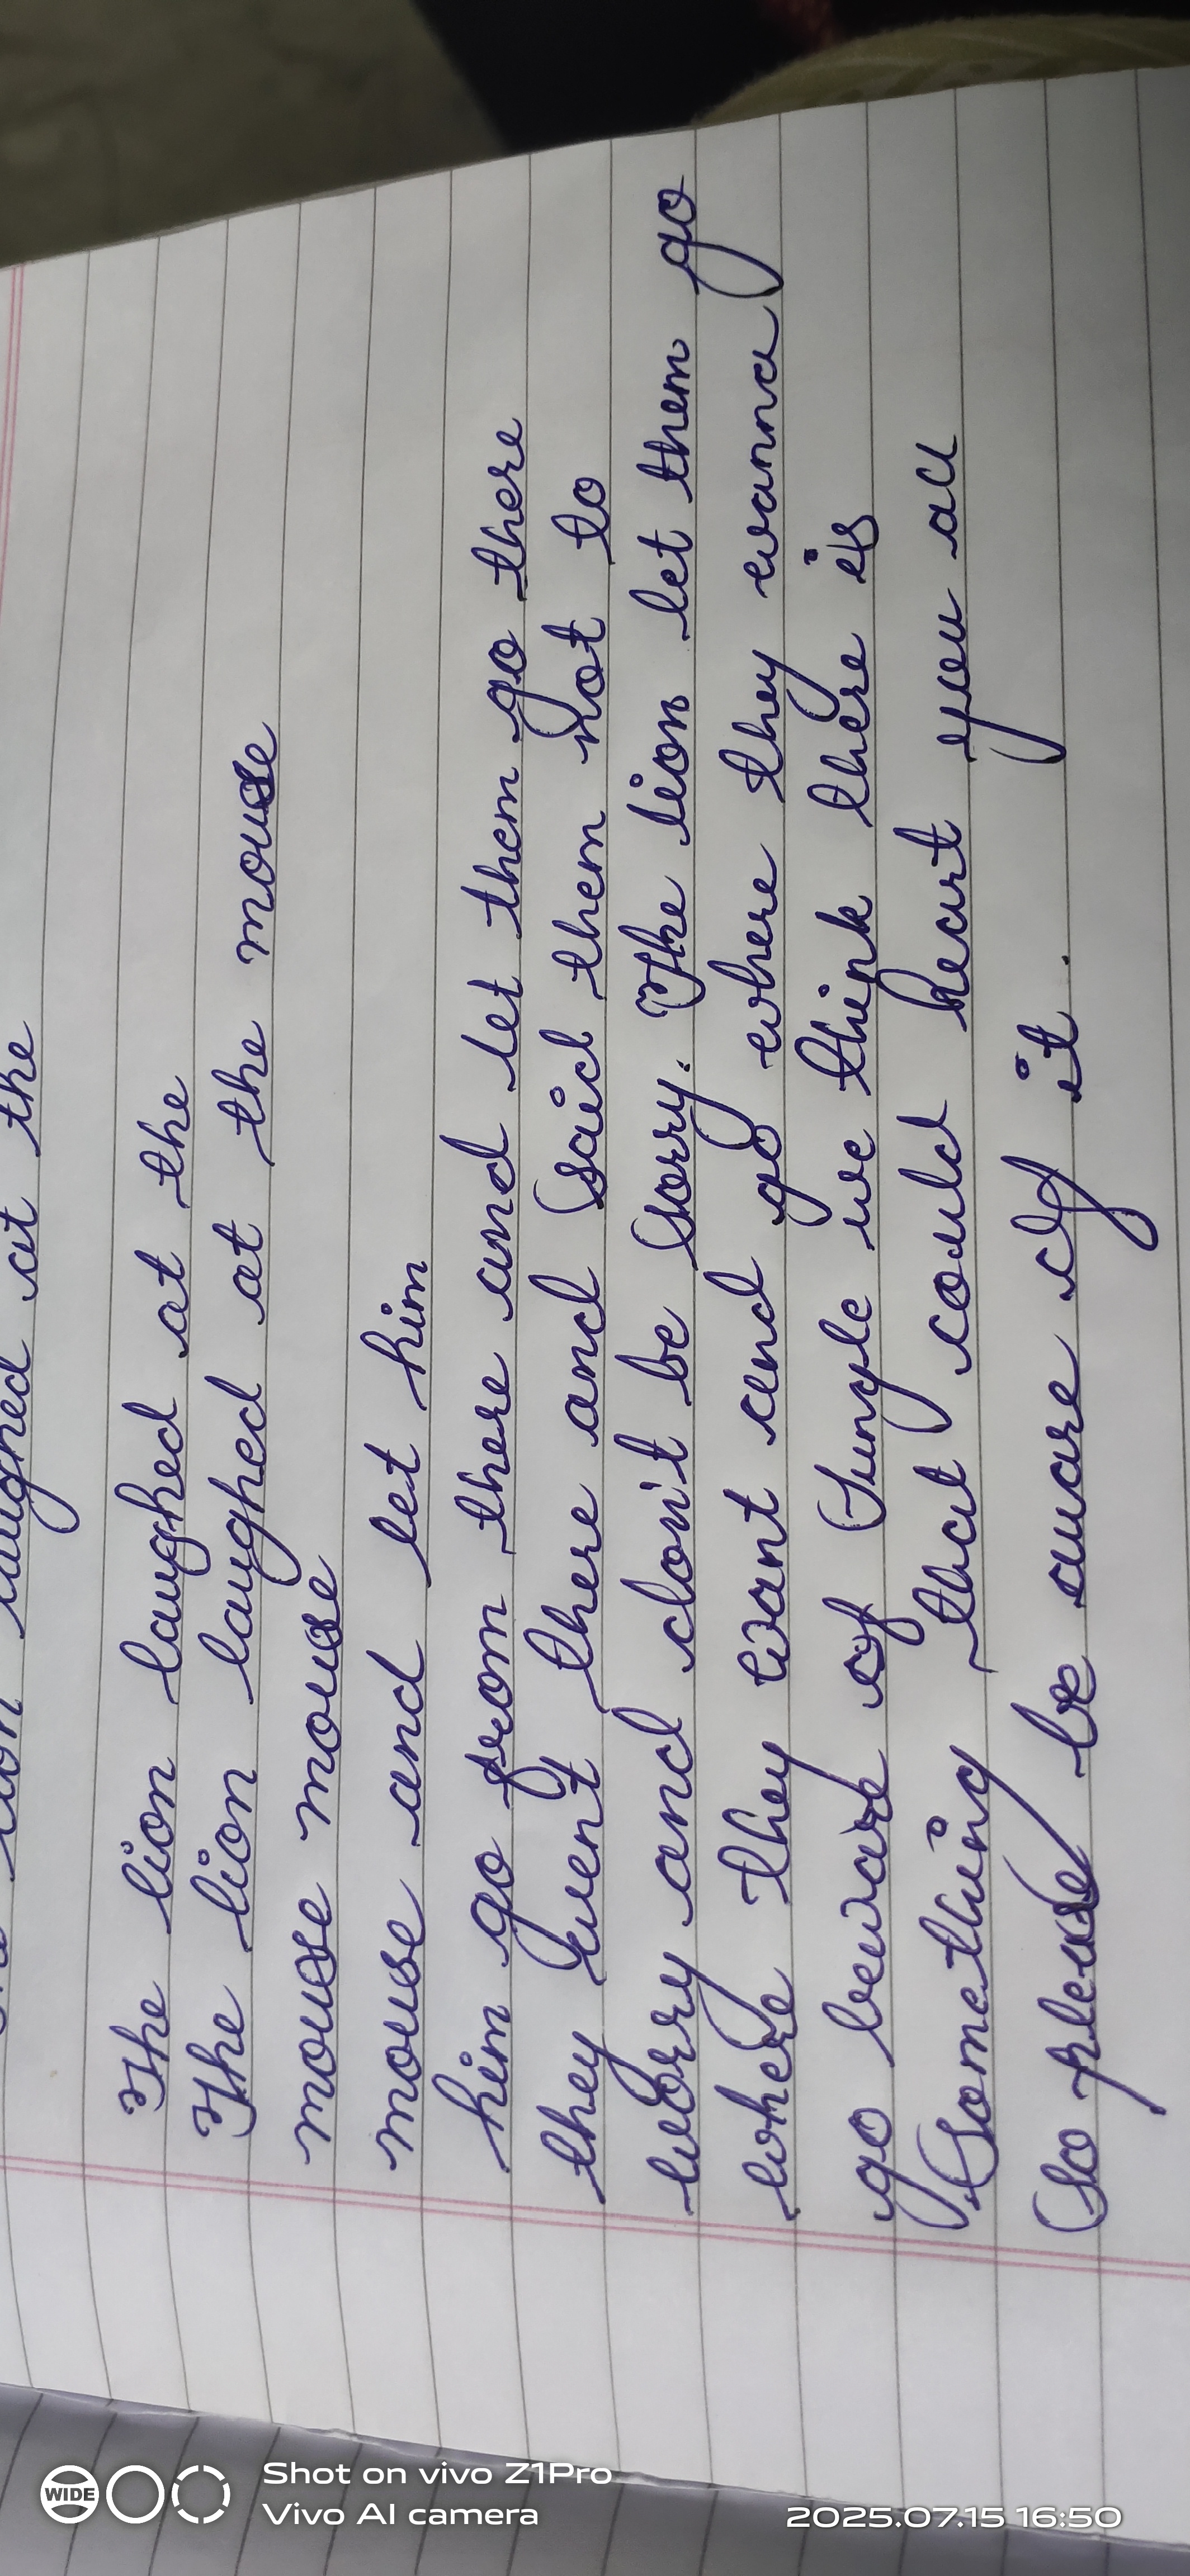 lion laughed at the
The lion laughed at the
The lion laughed at the mouse
mouse mouse
mouse and let him
him go from there and let them go there
they went there and said them not to
worry and don't be sorry. The lion let them go
where they want and go where they wanna
go beware of Jungle we think there is
something that could heart you all
so please be aware of it.
WIDE
Shot on vivo Z1Pro
Vivo AI camera
2025.07.15 16:50